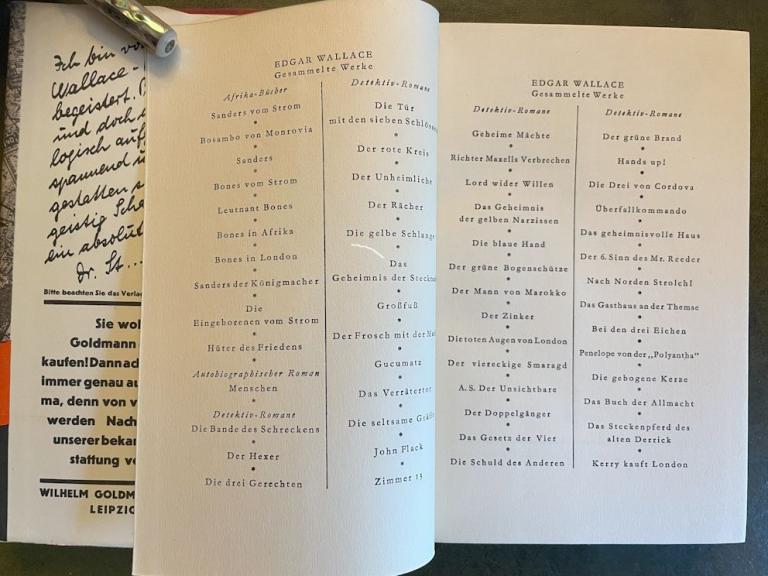 Ich bin
Wallace-
begeistert.
und doch
logisch
spannend
gestatten
geistig
ein absolut
Dr. St...
Bitte beachten Sie das
Sie
Goldmann
kaufen! Dann
immer genau
ma, denn von
werden Nach
unserer
stattung
WILHELM
LEIPZIG
EDGAR WALLACE
Gesammelte Werke
Afrika-Bücher
Sanders vom Strom
Bosambo von Monrovia
Sanders
Bones vom Strom
Leutnant Bones
Bones in Afrika
Bones in London
Sanders der Königmacher
Die
Eingeborenen vom Strom
Hüter des Friedens
Autobiographischer Roman
Menschen
Detektiv-Romane
Die Bande des Schreckens
Der Hexer
Die drei Gerechten
Detektiv-Romane
Die Tür
mit den sieben
Der rote Kreis
Der Unheimliche
Der Rächer
Die gelbe Schlange
Das
Geheimnis der
Großfuß
Der Frosch mit der
Gucumatz
Das
Die seltsame
John Flack
Zimmer 13
EDGAR WALLACE
Gesammelte Werke
Detektiv-Romane
Geheime Mächte
Richter Maxells Verbrechen
Lord wider Willen
Das Geheimnis
der gelben Narzissen
Die blaue Hand
Der grüne Bogenschütze
Der Mann von Marokko
Der Zinker
Die toten Augen von London
Der viereckige Smaragd
A.S. Der Unsichtbare
Der Doppelgänger
Das Gesetz der Vier
Die Schuld des Anderen
Detektiv-Romane
Der grüne Brand
Hands up!
Die Drei von Cordova
Überfallkommando
Das geheimnisvolle Haus
Der 6. Sinn des Mr. Reeder
Nach Norden Strolch!
Das Gasthaus an der Themse
Bei den drei Eichen
Penelope von der „Polyantha"
Die gebogene Kerze
Das Buch der Allmacht
Das Steckenpferd des
alten Derrick
Kerry kauft London